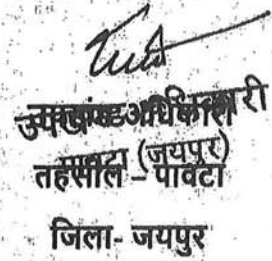 उपखण्ड अधिकारी
पावटा (जयपुर)
तहसील - पावटा
जिला- जयपुर